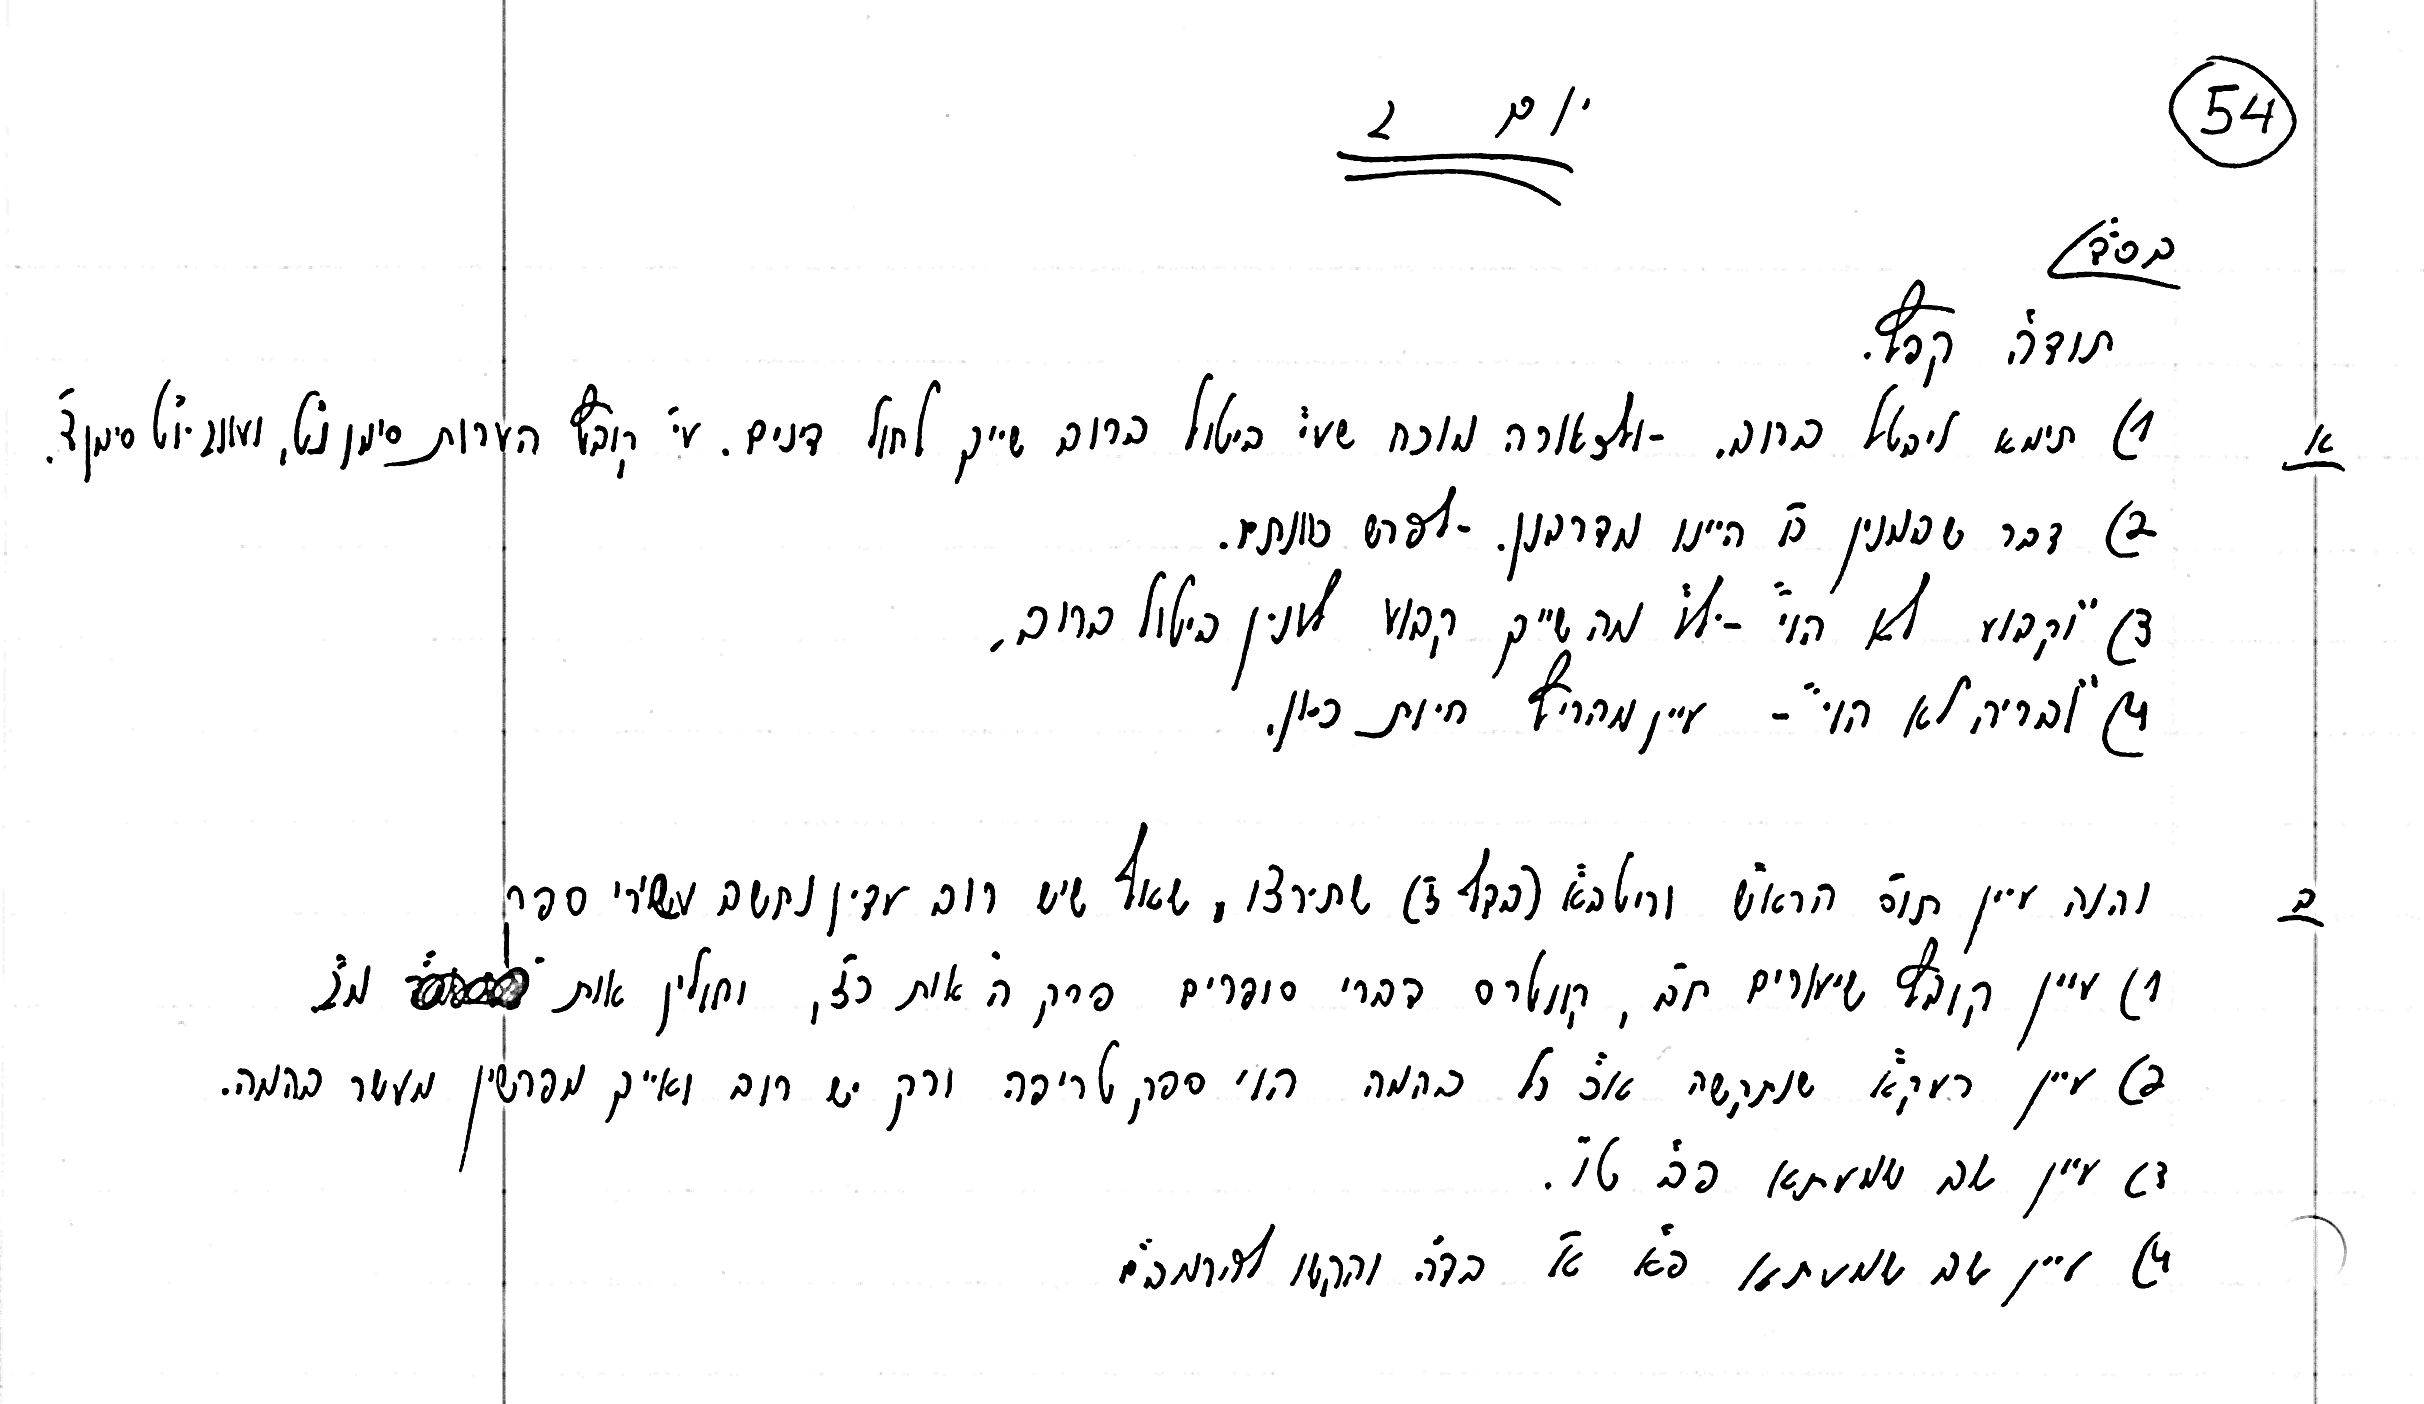 54
יום ב
בס"ד
תוד"ה קפץ.
א 1) תימא ליבטל ברוב. - ולכאורה מוכח שע"י ביטול ברוב שייך לחול דינים. עי' קובץ הערות סימן נ"ט, ועונג יו"ט סימן ד'.
2) דבר שבמנין כו' היינו מדרבנן. - לפרש כוונתם.
3) "וקבוע לא הוי" - יל"ע מה שייך קבוע לענין ביטול ברוב.
4) "ובריה לא הוי" - עיין מהרי"ץ חיות כאן.
ב והנה עיין תוס' הרא"ש וריטב"א (בדף ז') שתירצו, שאף שיש רוב עדיין נחשב עשירי ספק
1) עיין קובץ שיעורים ח"ב, קונטרס דברי סופרים פרק ה' אות כ"ג, וחולין אות מ"ב
2) עיין רעק"א שנתקשה א"כ כל בהמה הוי ספק טריפה ורק יש רוב ואייך מפרישין מעשר בהמה.
3) עיין שב שמעתא פ"ב ט"ו.
4) עיין שב שמעתא פ"א א' בד"ה והקשו להרמב"ם